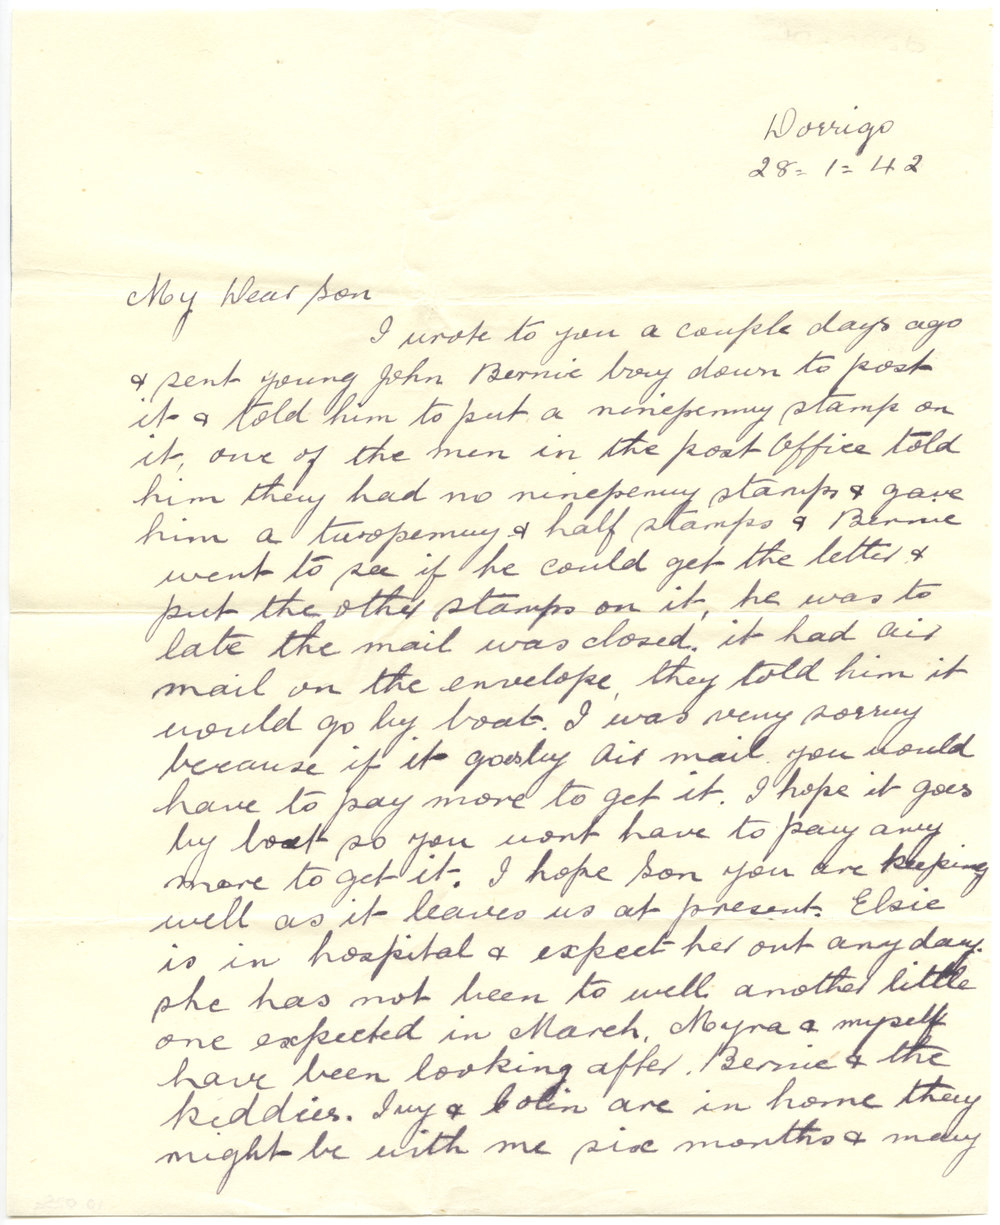 Dorrigo
28=1=42
My Dear Son
I wrote to you a couple days ago
& sent young John Bernie boy down to post
it & told him to put a ninepenny stamp on
it, one of the men in the post Office told
him they had no ninepenny stamps & gave
him a twopenny & half stamps & Bernie
went to see if he could get the letter &
put the other stamps on it, he was to
late the mail was closed. it had air
mail on the envelope, they told him it
would go by boat. I was very sorry
because if it goes by Air mail you would
have to pay more to get it. I hope it goes
by boat so you wont have to pay any
more to get it. I hope Son you are keeping
well as it leaves us at present. Elsie
is in hospital & expect her out any day.
she has not been to well another little
one expected in March. Myra & myself
have been looking after. Bernie & the
kiddies. Ivy & Colin are in home they
might be with me six months & many